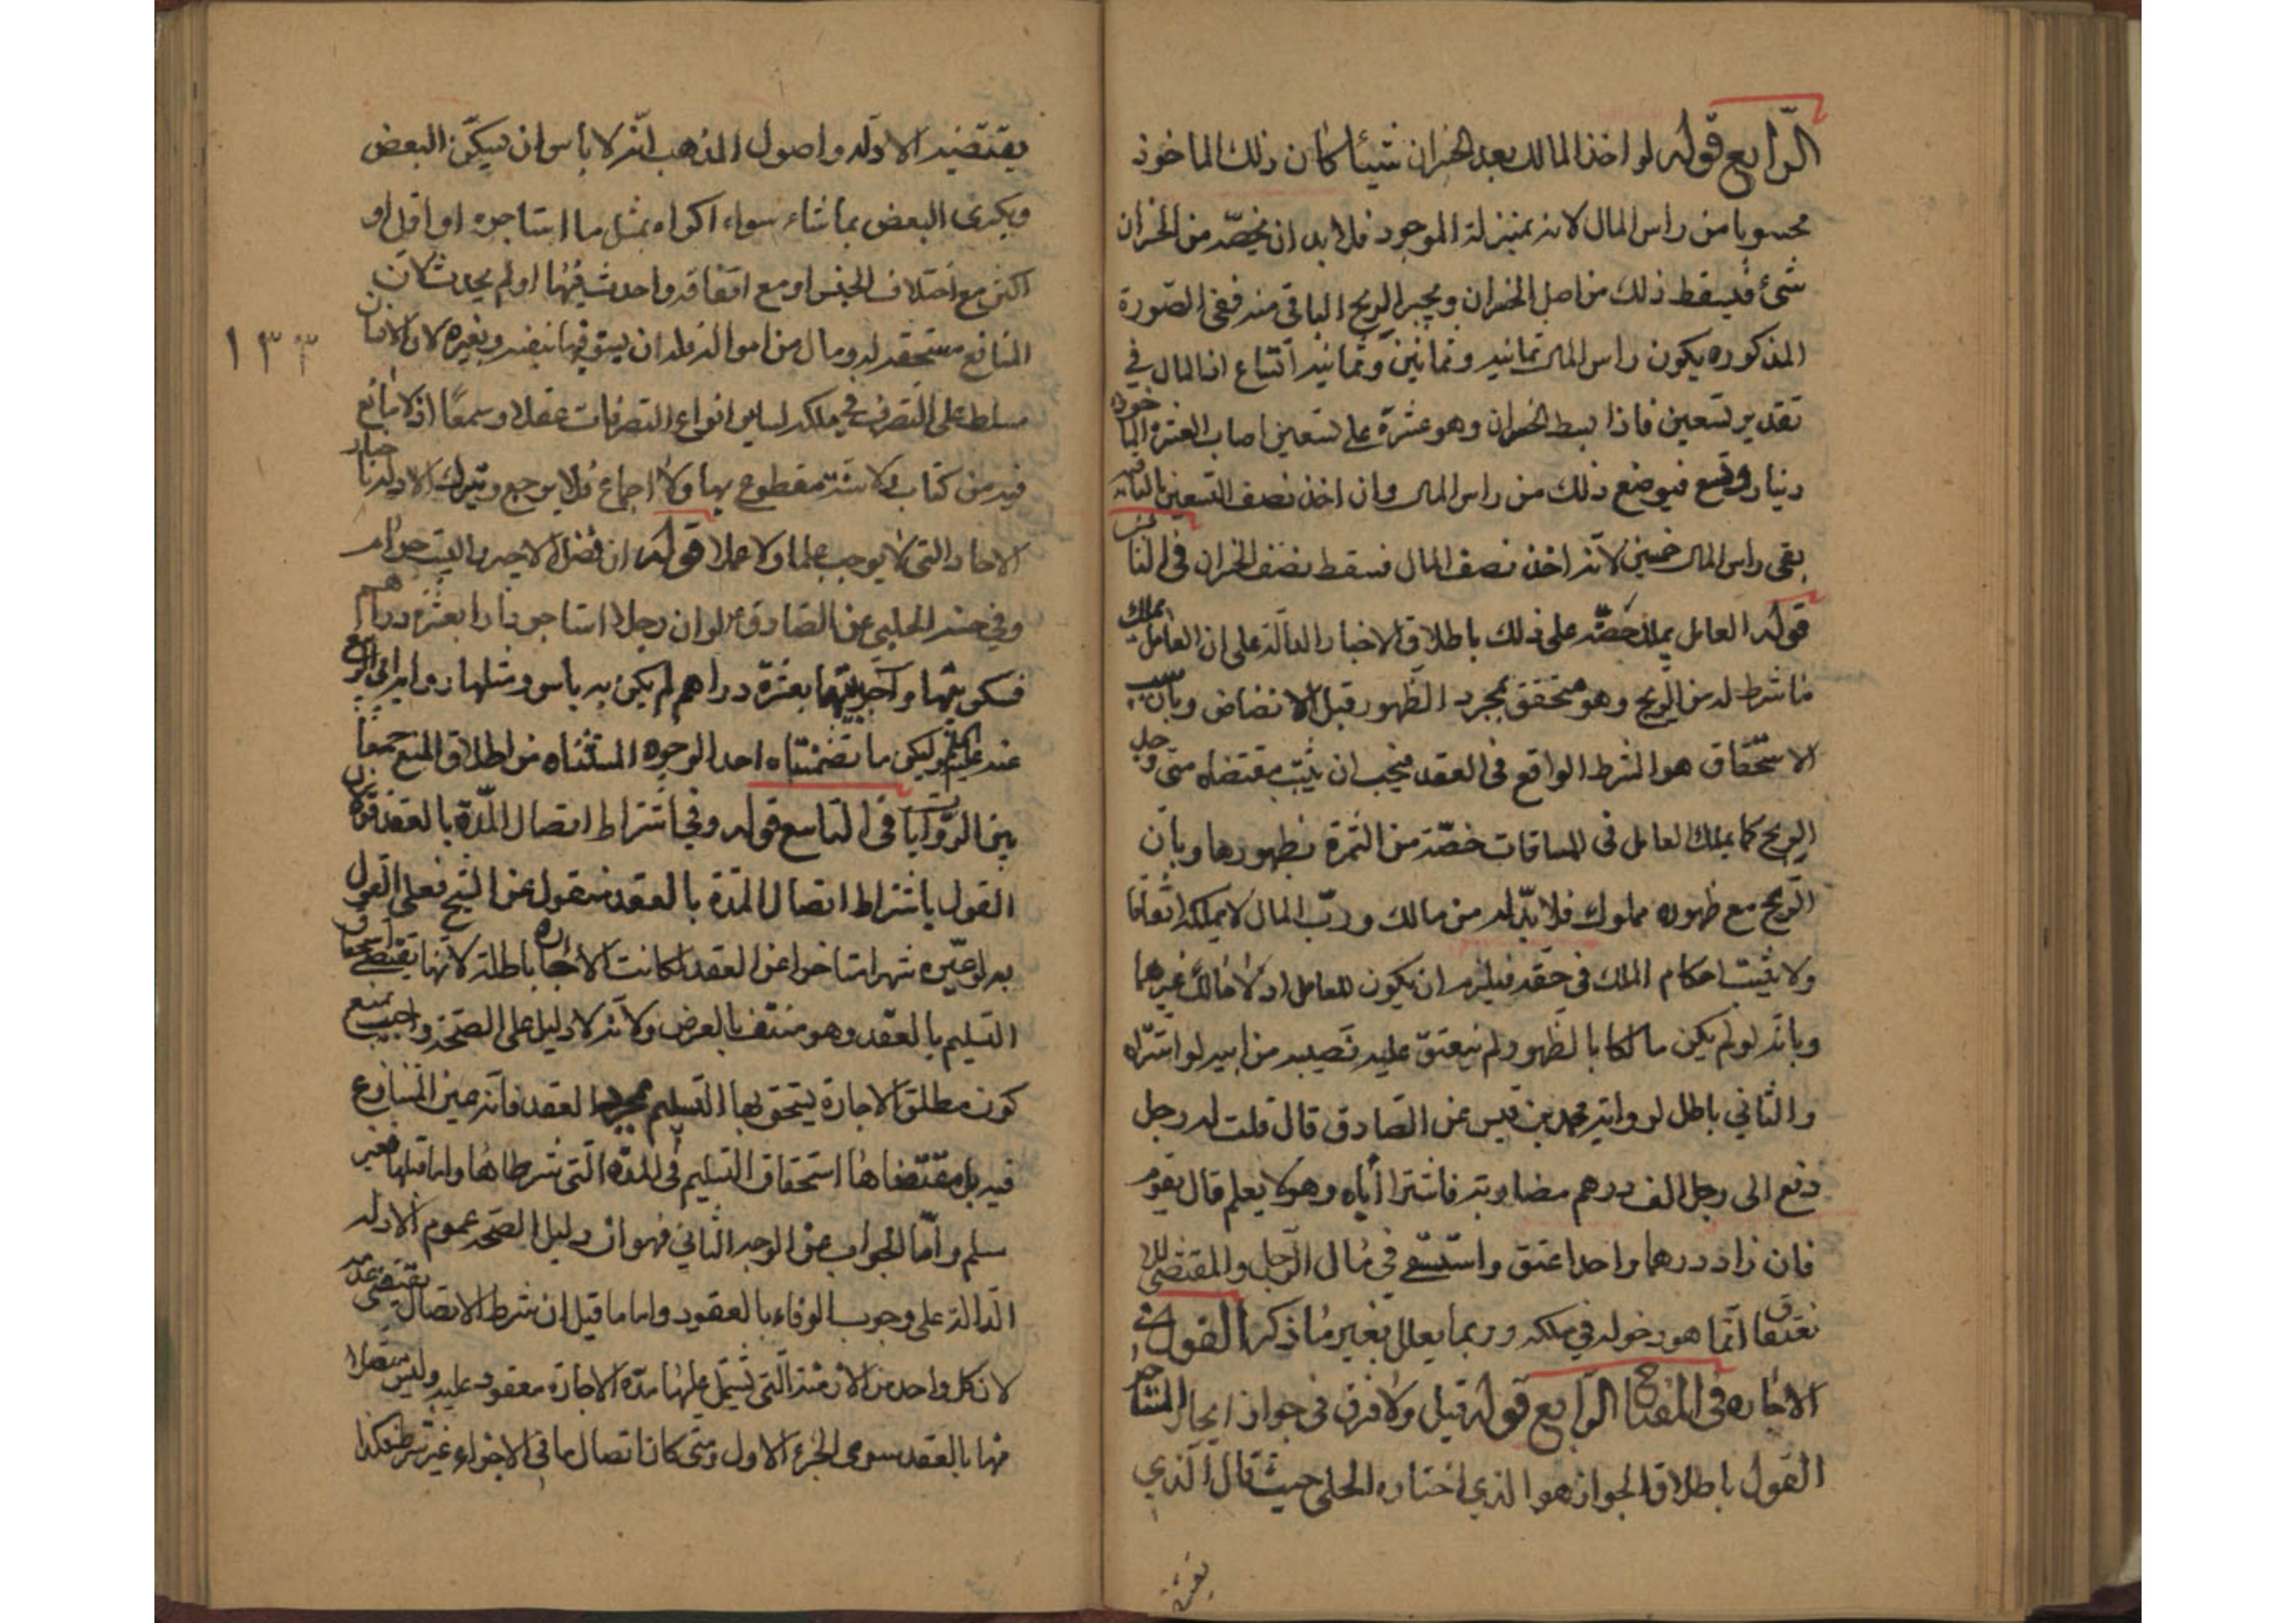 الرّابع قوله لو اخذ المالك بعد الخسران شيئا كان ذلك الماخوذ
محسوبا من راس المال لانه بمنزلة الموجود فلا بد ان يخصّه من الخسران
شئ فيسقط ذلك من اصل الخسران ويجبر الربح الباقي منه ففي الصورة
المذكوره يكون راس المال ثمانيه وثمانين وثمانيه اتساع اذ المال في
تقدير تسعين فاذا بسط الخسران وهو عشرة على تسعين اصاب العشرة الماخوذه
دينار وتسع فيوضع ذلك من راس المال وان اخذ نصف التسعين الباقيه
بقى راس المال خمسين لانه اخذ نصف المال فسقط نصف الخسران في الخامس
قوله العامل يملك حصّته على ذلك باطلاق الاخبار الدالة على ان العامل يملك
ما شرط له من الربح وهو متحقق بمجرد الظهور قبل الانضاض وبان سبب
الاستحقاق هو الشرط الواقع في العقد فيجب ان يثبت مقتضاه متى وجد
الربح كما يملك العامل في المساقات حصّته من الثمرة بظهورها وبان
الربح مع ظهوره مملوك فلا بدّ له من مالك وربّ المال لا يملكه اتفاقا
ولا يثبت احكام الملك في حقه فيلزم ان يكون للعامل اذ لا مالك غيرهما
وبانه لو لم يكن مالكا بالظهور لم ينعتق عليه نصيبه من ابيه لو اشتراه
والثاني باطل لروايه محمد بن قيس عن الصادق قال قلت له رجل
دفع الى رجل الف درهم مضاربته فاشترا اباه وهو لا يعلم قال يقوم
فان زاد درهما واحدا عتق واستسعى في مال الرجل والمقتضى للا
نعتاق انّما هو دخوله في ملكه وربما يعلل بغير ما ذكر القول في
الاجاره في المفتاح الرابع قوله قيل ولا فرق في جواز ايجار المستاجر
القول باطلاق الجواز هو الذي اختاره الحلي حيث قال الذي
يقتضيه
يقتضيه الادله واصول المذهب انّه لا بأس ان يسكّن البعض
ويكرى البعض بما شاء سواء اكراه بمثل ما استاجره او اقل او
اكثر مع اختلاف الجنس او مع اتفاقه واحدث فيها او لم يحدث لان
المنافع مستحقه له ومال من امواله فله ان يستوفيها بنفسه وبغيره لان الانسان
مسلط على التصرف في ملكه لساير انواع التصرفات عقلا وسمعًا اذ لا مانع
فيه من كتاب ولا سنة مقطوع بها ولا اجماع فلا يرجع ويترك الادله باخبار
الاحاد التي لا يوجب علما ولا عملا قوله ان فضل الاجير والبيت حرام
وفي حسنه الحلبي عن الصادق ع لو ان رجلا استاجر دارا بعشرة دراهم
فسكن ثلثيها وآجر ثلثها بعشرة دراهم لم يكن به باس ومثلها روايه ابى الربيع
عنه عليه السلم وليكن ما تضمّنتاه احد الوجوه المستثناه من اطلاق المنع جمعا
بين الروايات في التاسع قوله وفي اشتراط اتصال المدّة بالعقد قولان
القول باشتراط اتصال المدة بالعقد منقول عن الشيخ فعلى القول
به لو عيّن شهرا متاخرا عن العقد لكانت الاجاره باطلة لانها يقتضى استحقاق
التسليم بالعقد وهو منتف بالفرض ولانه لا دليل على الصحّة واجيب بمنع
كون مطلق الاجارة يستحق بها التسليم بمجرد العقد فانه عين المتنازع
فيه بل مقتضاها استحقاق التسليم في المدّه التي شرطاها واما قبلها فغير
مسلم وامّا الجواب عن الوجه الثاني فهو ان دليل الصحه عموم الادله
الدالة على وجوب الوفاء بالعقود واما ما قيل ان شرط الاتصال يقتضى عدمه
لان كل واحد من الازمنة التي تشتمل عليها مدّه الاجارة معقود عليه وليس متصلا
منها بالعقد سوى الجزء الاول ومتى كان اتصال ما في الاجزاء غير شرط فكذا
١٣٣